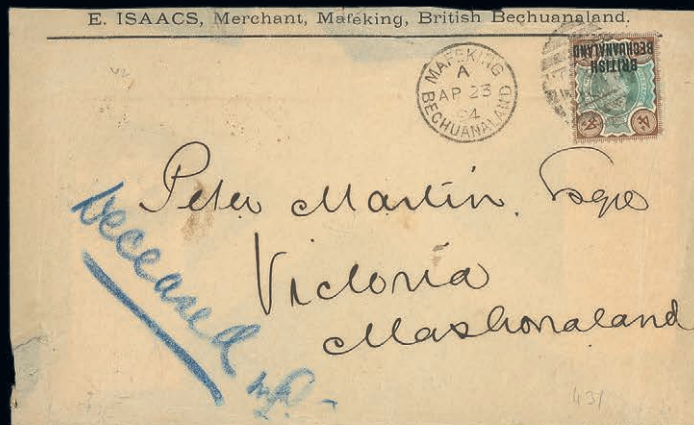 E. ISAACS, Merchant, Mafeking, British Bechuanaland.
MAFEKING
A
AP 23
94
BECHUANALAND
BRITISH
BECHUANALAND
4D 4D
Peter Martin, Esqre
Victoria
Mashonaland
Deceased
431